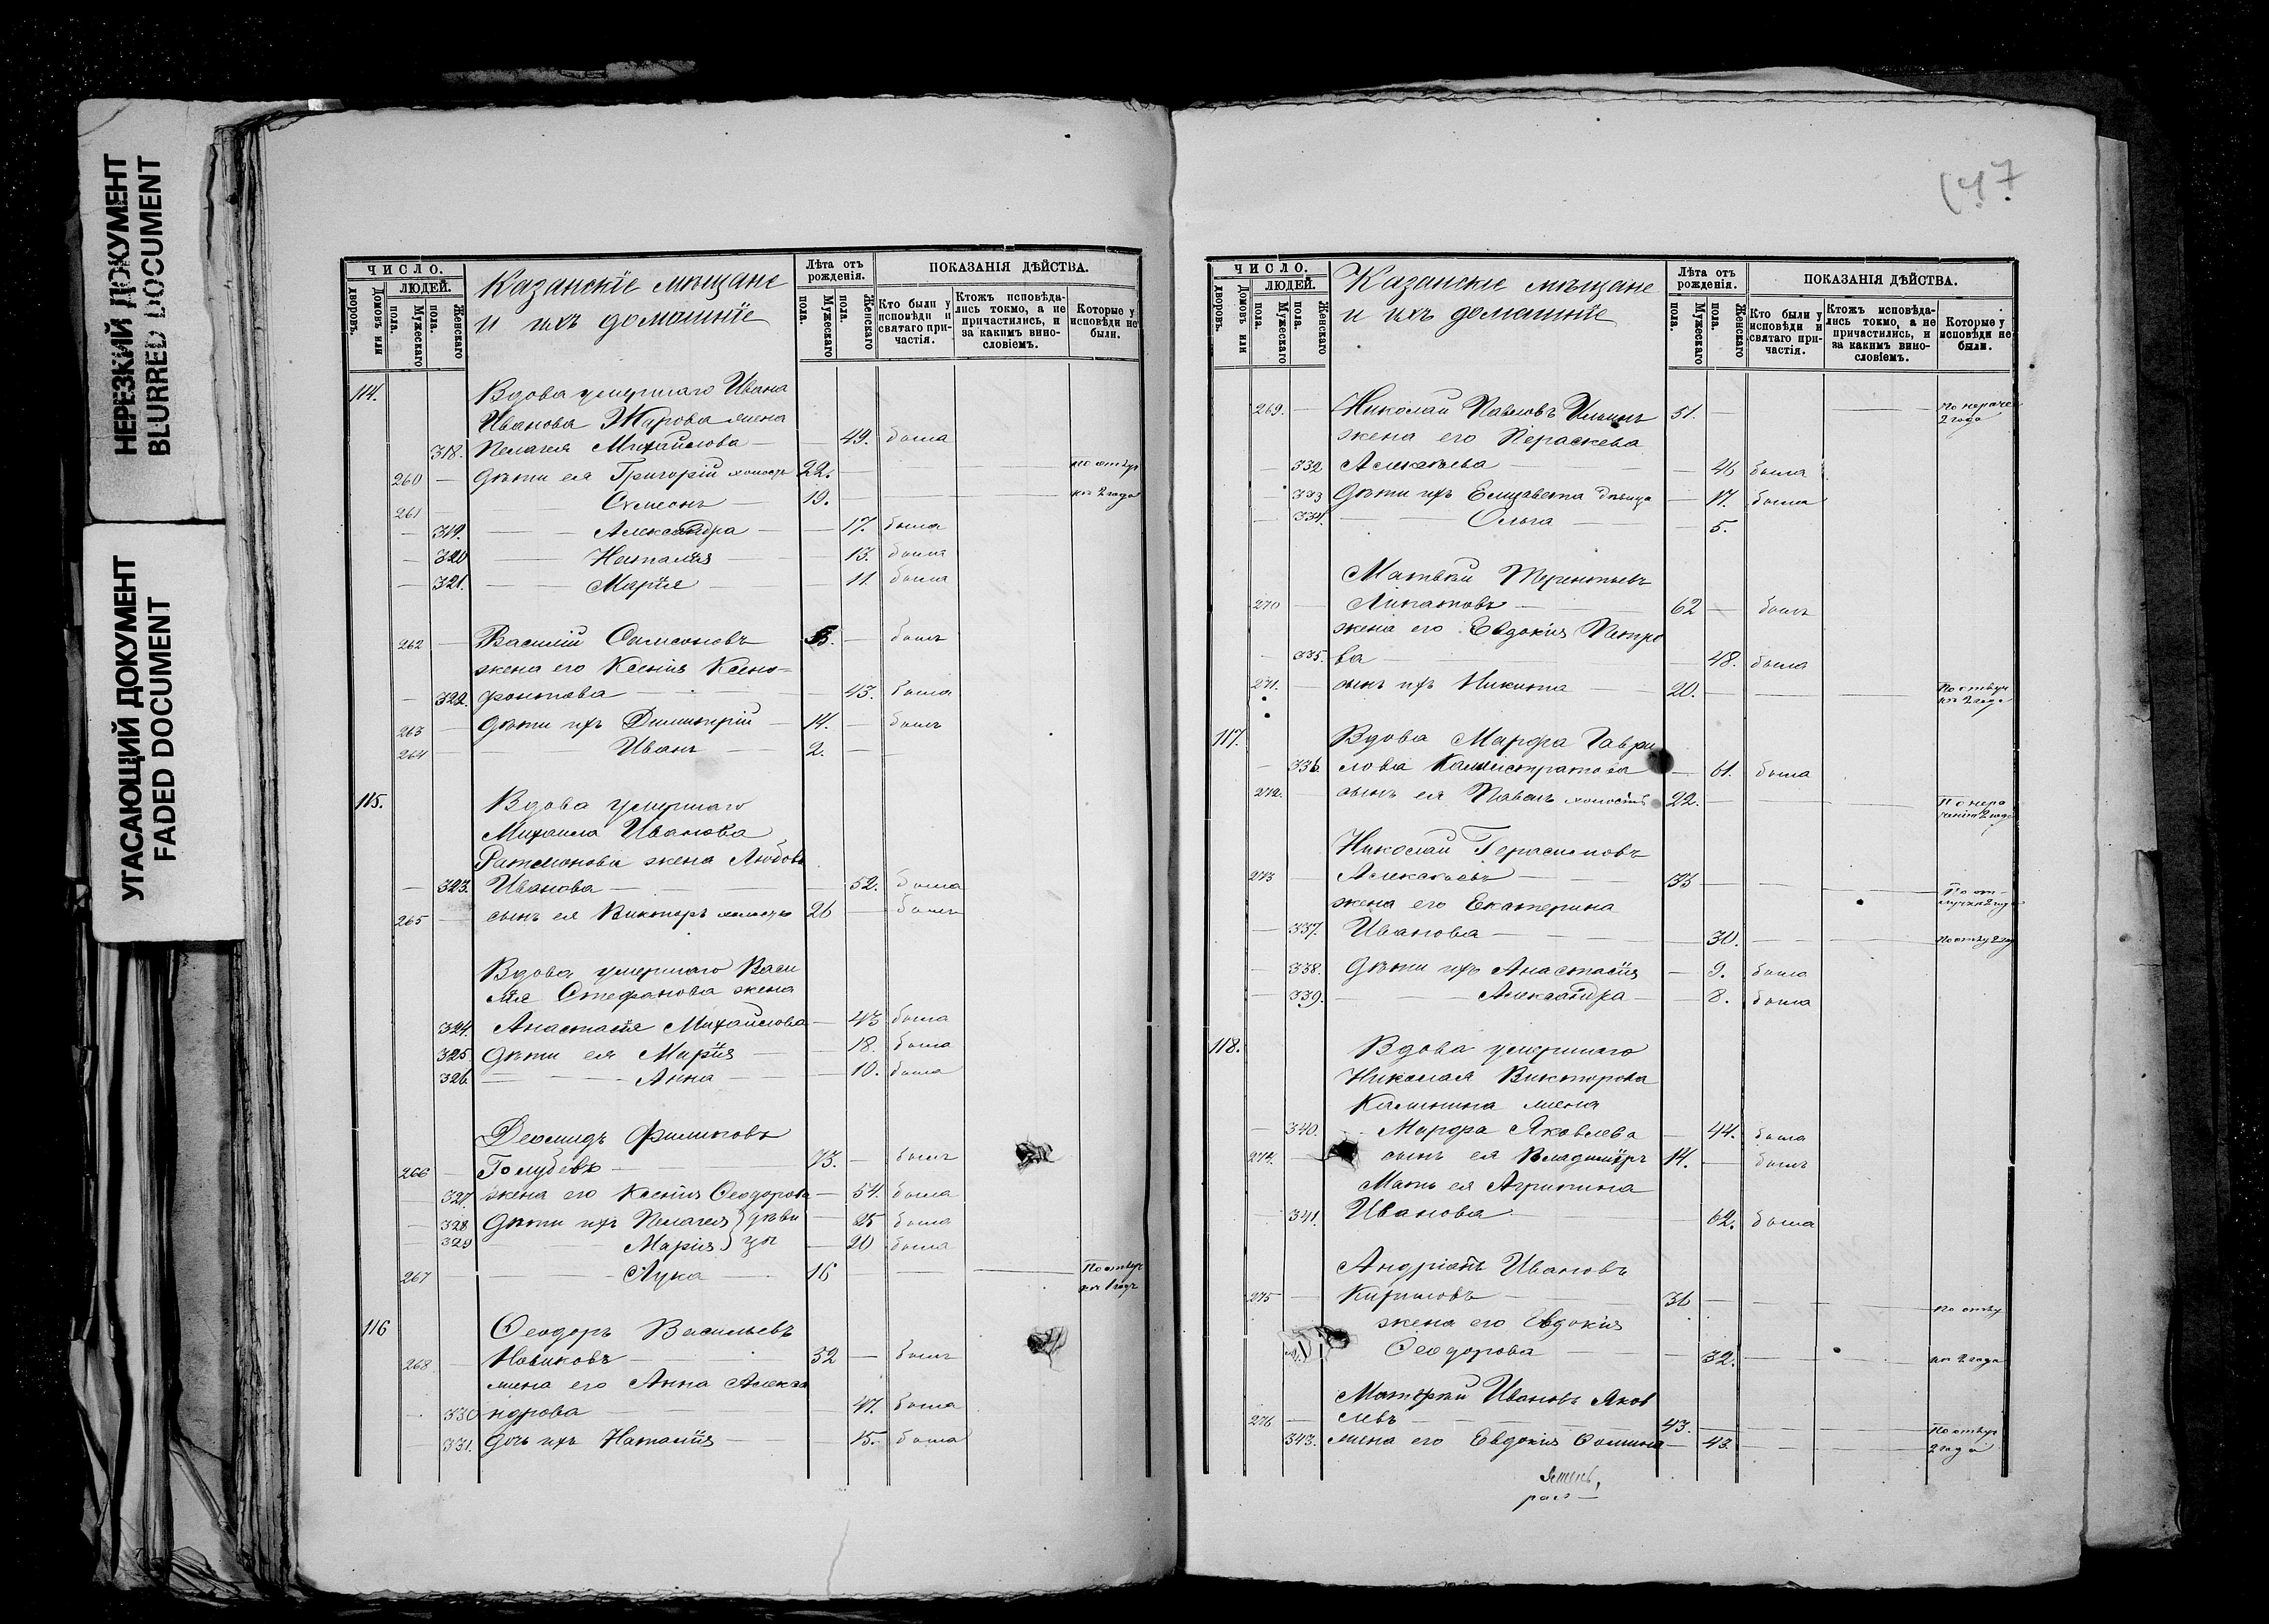 НЕРЕЗКИЙ ДОКУМЕНТ
BLURRED DOCUMENT
УГАСАЮЩИЙ ДОКУМЕНТ
FADED DOCUMENT
ЧИСЛО.
ЛЮДЕЙ.
Домовъ или дворовъ.
Мужескаго пола.
Женскаго пола.
Казанскіе мѣщане
и ихъ домашніе
Лѣта отъ рожденія.
Мужескаго пола.
Женскаго пола.
ПОКАЗАНІЯ ДѢЙСТВА.
Кто были у исповѣди и святаго причастія.
Ктожъ исповѣдались токмо, а не причастились, и за какимъ винословіемъ.
Которые у исповѣди не были.
114. Вдова умершаго Ивана
Иванова Жарова жена
318. Пелагея Михайлова — 49. была
260 — Дѣти ея Григорій холостъ 22. — по отлуч
261 — Симеонъ — 19. — кѣ 2 года
— 319. — Александра — 17. была
— 320 — Наталія — 13. была
— 321. — Марія — 11. была
262 — Василій Самсоновъ — былъ
жена его Ксенія Ксено=
— 322. фонтова — 43. была
263 — Дѣти ихъ Димитрій — 14. — былъ
264 — Иванъ — 2. —
115. Вдова умершаго
Михаила Иванова
Ратманова жена Любовь
— 323. Иванова — 52. была
265 — сынъ ея Викторъ холостъ 26 — былъ
Вдова умершаго Васи
лія Стефанова жена
324. Анастасія Михайлова — 43 была
325 Дѣти ея Марія — 18. была
326. — Анна — 10. была
Деомидъ Филиповъ
266 — Голубевъ — 73. — былъ
327. жена его Ксенія Ѳеодорова — 54. была
— 328 Дѣти ихъ Пелагея } дѣви — 25 была
— 329 Марія } цы — 20 была
267 — Лука — 16 — По отлуч
кѣ 1 годъ
116 Ѳеодоръ Васильевъ
268 — Новиковъ — 52 — былъ
жена его Анна Алекса
— 330 ндрова — 47. была
— 331. дочь ихъ Наталія — 15. была
147
ЧИСЛО.
ЛЮДЕЙ.
Домовъ или дворовъ.
Мужескаго пола.
Женскаго пола.
Казанскіе мѣщане
и ихъ домашніе
Лѣта отъ рожденія.
Мужескаго пола.
Женскаго пола.
ПОКАЗАНІЯ ДѢЙСТВА.
Кто были у исповѣди и святаго причастія.
Ктожъ исповѣдались токмо, а не причастились, и за какимъ винословіемъ.
Которые у исповѣди не были.
269. — Николай Павловъ Ильинъ 51. — по нераче
2 года
жена его Пераскева
— 332 Алексѣева — 46 была
— 333 Дѣти ихъ Елизавета дѣвица — 17. была
— 334. — Ольга — 5.
Матвѣй Терентьевъ
270 — Липатовъ — 62 — былъ
жена его Евдокія Петро
— 335. ва — 48. была
271. — сынъ ихъ Никита — 20. — По отлуч
кѣ 2 года
117. Вдова Марфа Гаври
— 336 лова Калистратова — 61. была
272. сынъ ея Павелъ холостъ 22. — По нера
ченію 2 года
Николай Герасимовъ
273 — Алексѣевъ — 33 — По от-
лучкѣ 2 года
жена его Екатерина
— 337. Иванова — 30. — По отлу 2 го
— 338. Дѣти ихъ Анастасія — 9. была
— 339. — Александра — 8. была
118. Вдова умершаго
Николая Викторова
Калинина жена
— 340. Марфа Яковлева — 44. была
274. — сынъ ея Владиміръ 14. — былъ
Мать ея Агрипина
— 341. Иванова — 62. была
Андріанъ Ивановъ
275 — Кириловъ — 36 — по отлу
жена его Евдокія
Ѳеодорова — 32. — кѣ 2 года
Матвѣй Ивановъ Яков
276 — левъ — 43. — По отлуч
— 343. жена его Евдокія Ѳомина — 43. — 2 года